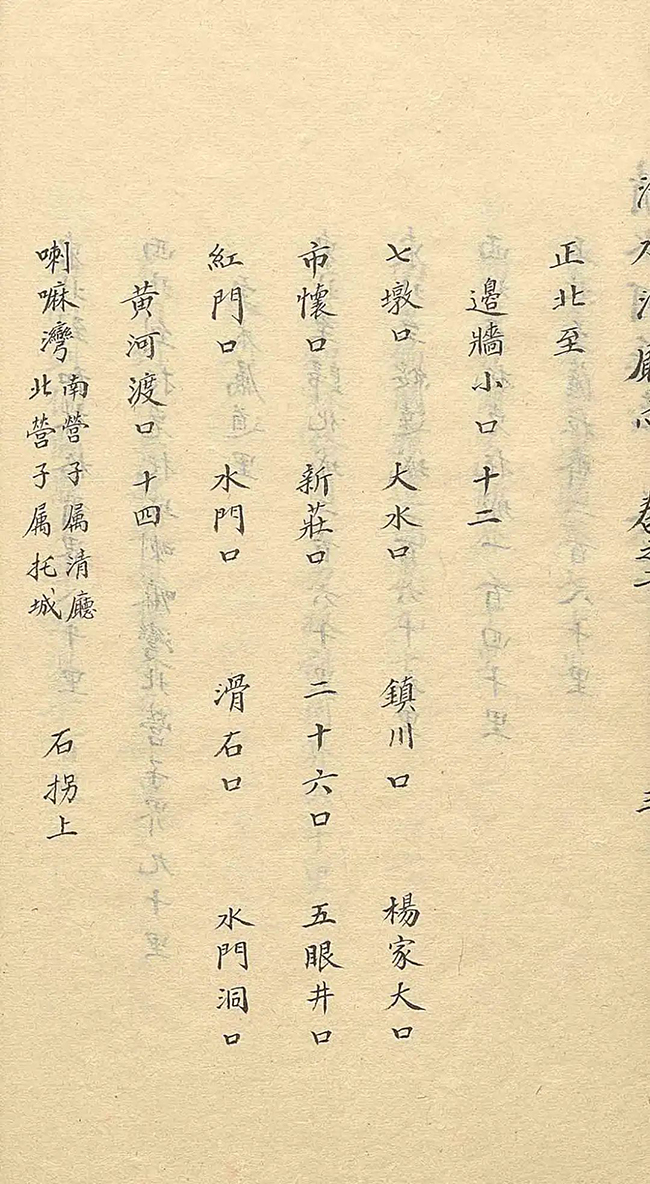 清水河廳志 卷之二
正北至
邊牆小口十二
七墩口 大水口 鎮川口 楊家大口
市懷口 新莊口 二十六口 五眼井口
紅門口 水門口 滑石口 水門洞口
黃河渡口十四
喇嘛灣 南營子属清廳 北營子属托城 石拐上